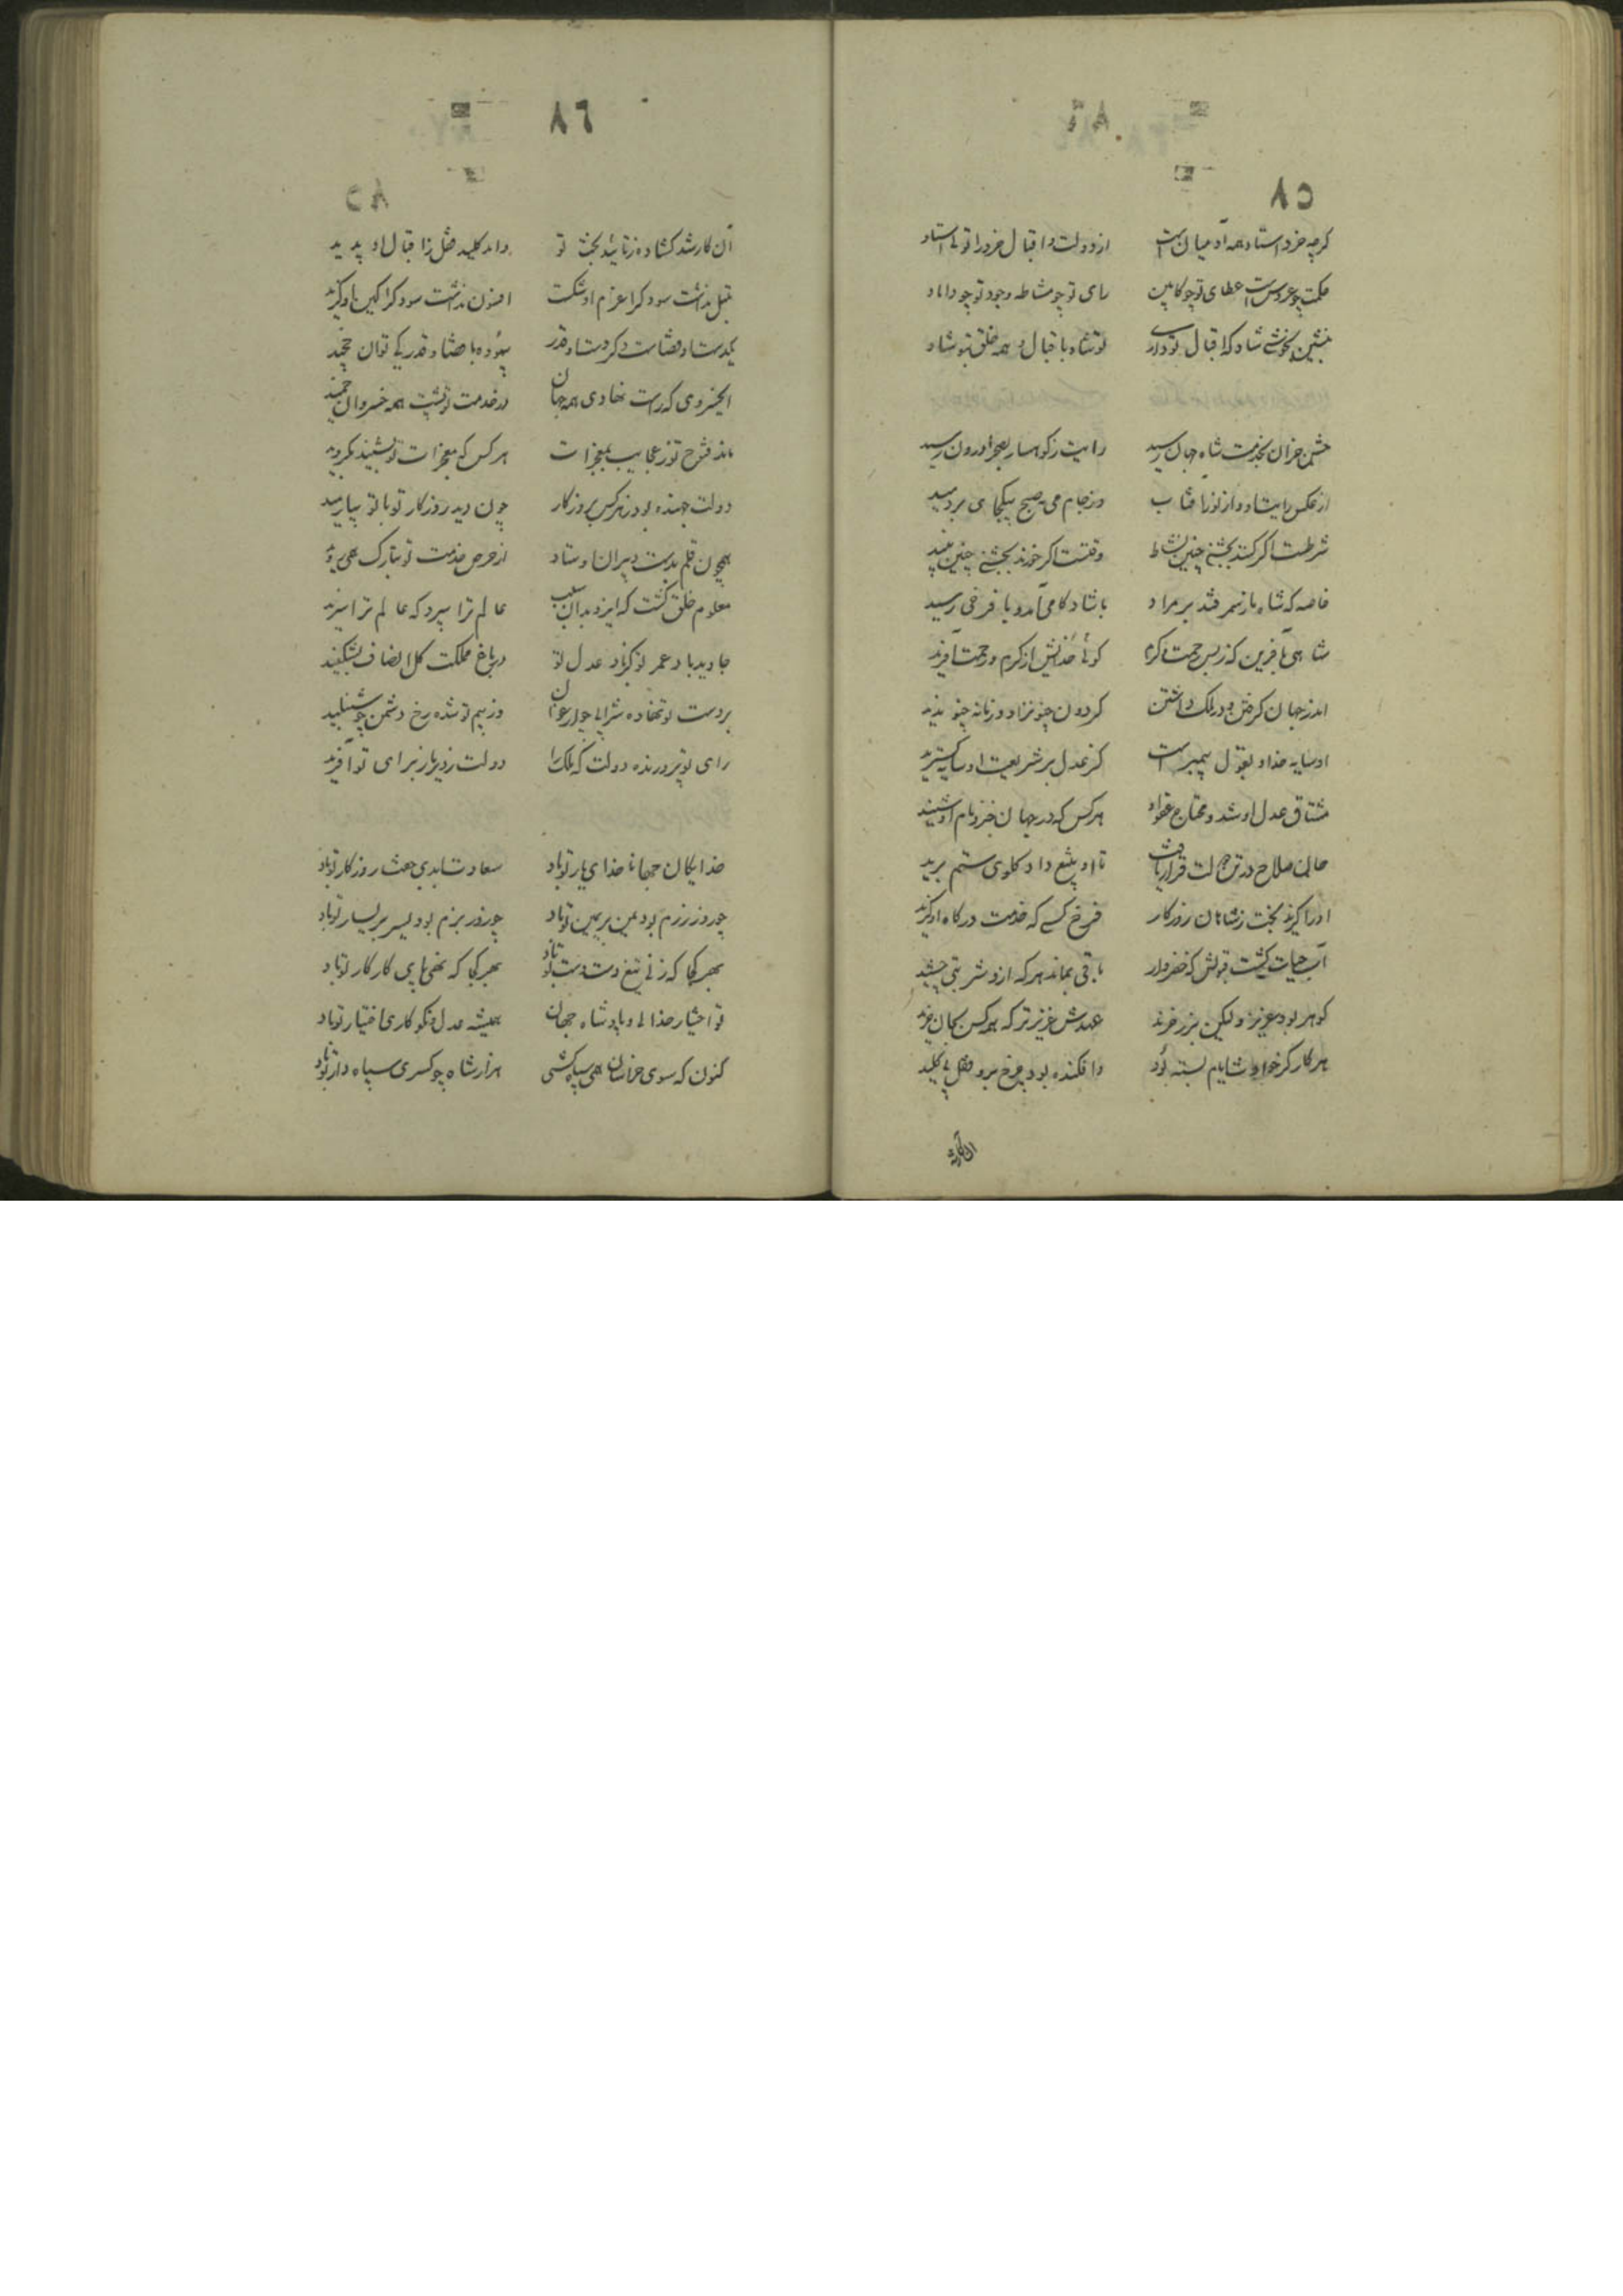 ۸۵
گرچه خرد استاد همه آدمیان است از دولت و اقبال خرد را تو لی استاد
حکمت چو عروس است عطای تو چو کابین رای تو چو مشاطه وجود تو چو داماد
بنشین بخوشی شاد که اقبال تو داری تو شاد باقبال و همه خلق بتو شاد
جشن خزان بخدمت شاه جهان رسید رایت ز کوهسار بصحرا درون رسید
از عکس رایت او و از نور آفتاب وز جام می صبح بیکجای بردمید
شرطست اگر کنند بجشنی چنین نشاط وقتست اگر خورند بجشنی چنین نبید
خاصه که شاه باز سمرقند بر مراد با شادکامی آمد و با فرخی رسید
شاهی بآفرین که ز بس رحمت و کرم گوئی خدایش از کرم و رحمت آفرید
اندر جهان گرفتن و در ملک داشتن گردون چنو نزاد و زمانه چنو ندید
او سایه خدا و بقول پیمبر است کز عدل بر شریعت او سایه گسترید
مشتاق عدل او شد و محتاج عفو او هر کس که در جهان خبر و نام او شنید
حالی صلاح در حرکت قرار یافت تا او بتیغ داد گلوی ستم برید
او را گزید بخت ز شاهان روزگار فرخ کسی که خدمت درگاه او گزید
آب حیات گشت قبولش که خضروار باقی بماند هر که ازو شربتی چشید
گوهر بود عزیز و لیکن بزر خرند عهدش عزیزتر که همه کس بجان خرید
هر کار کز خوادث ایام بسته بود وافکنده بود چرخ برو قفل بی کلید
آن کار شد
۸۶
آن کار شد گشاده ز تائید بخت تو وامد کلید قفل ز اقبال او پدید
تنبل نداشت سود کرا عزم او شکست افسون نداشت سود کرا کین او گزید
یکدست او قضاست دگر دست او قدر بیهوده با قضا و قدر کی توان چخید
ای خسروی که راست نهادی همه جهان در خدمت تو پشت همه خسروان خمید
ماند فتوح تو ز عجایب بمعجزات هر کس که معجزات تو بشنید بگروید
دولت جهنده بود ز هر کس بروزگار چون دید روزگار تو با تو بیارمید
همچون قلم بدست دبیران اوستاد از حرص خدمت تو بتارک همی دوید
معلوم خلق گشت که ایزد بدان سبب عالم ترا سپرد که عالم ترا سزید
جاوید باد عمر تو کز باد عدل تو در باغ مملکت گل انصاف بشکفید
بر دست تو نهاده شرابی چو ارغوان وز بیم تو شده رخ دشمن چو شنبلید
رای تو پرورنده دولت که ملک را دولت ز دیرباز برای تو آفرید
خدایگان جهانا خدای یار تو باد سعادت ابدی جفت روزگار تو باد
چو روز رزم بود یمن بر یمین تو باد چو روز بزم بود یسر بر یسار تو باد
بهر کجا که زنی تیغ دست دست تو باد بهر کجا که نهی پای کار کار تو باد
تو اختیار خدائی و پادشاه جهان همیشه عدل و نکوکاری اختیار تو باد
کنون که سوی خراسان همی سپاه کشی هزار شاه چو کسری سپاه‌دار تو باد